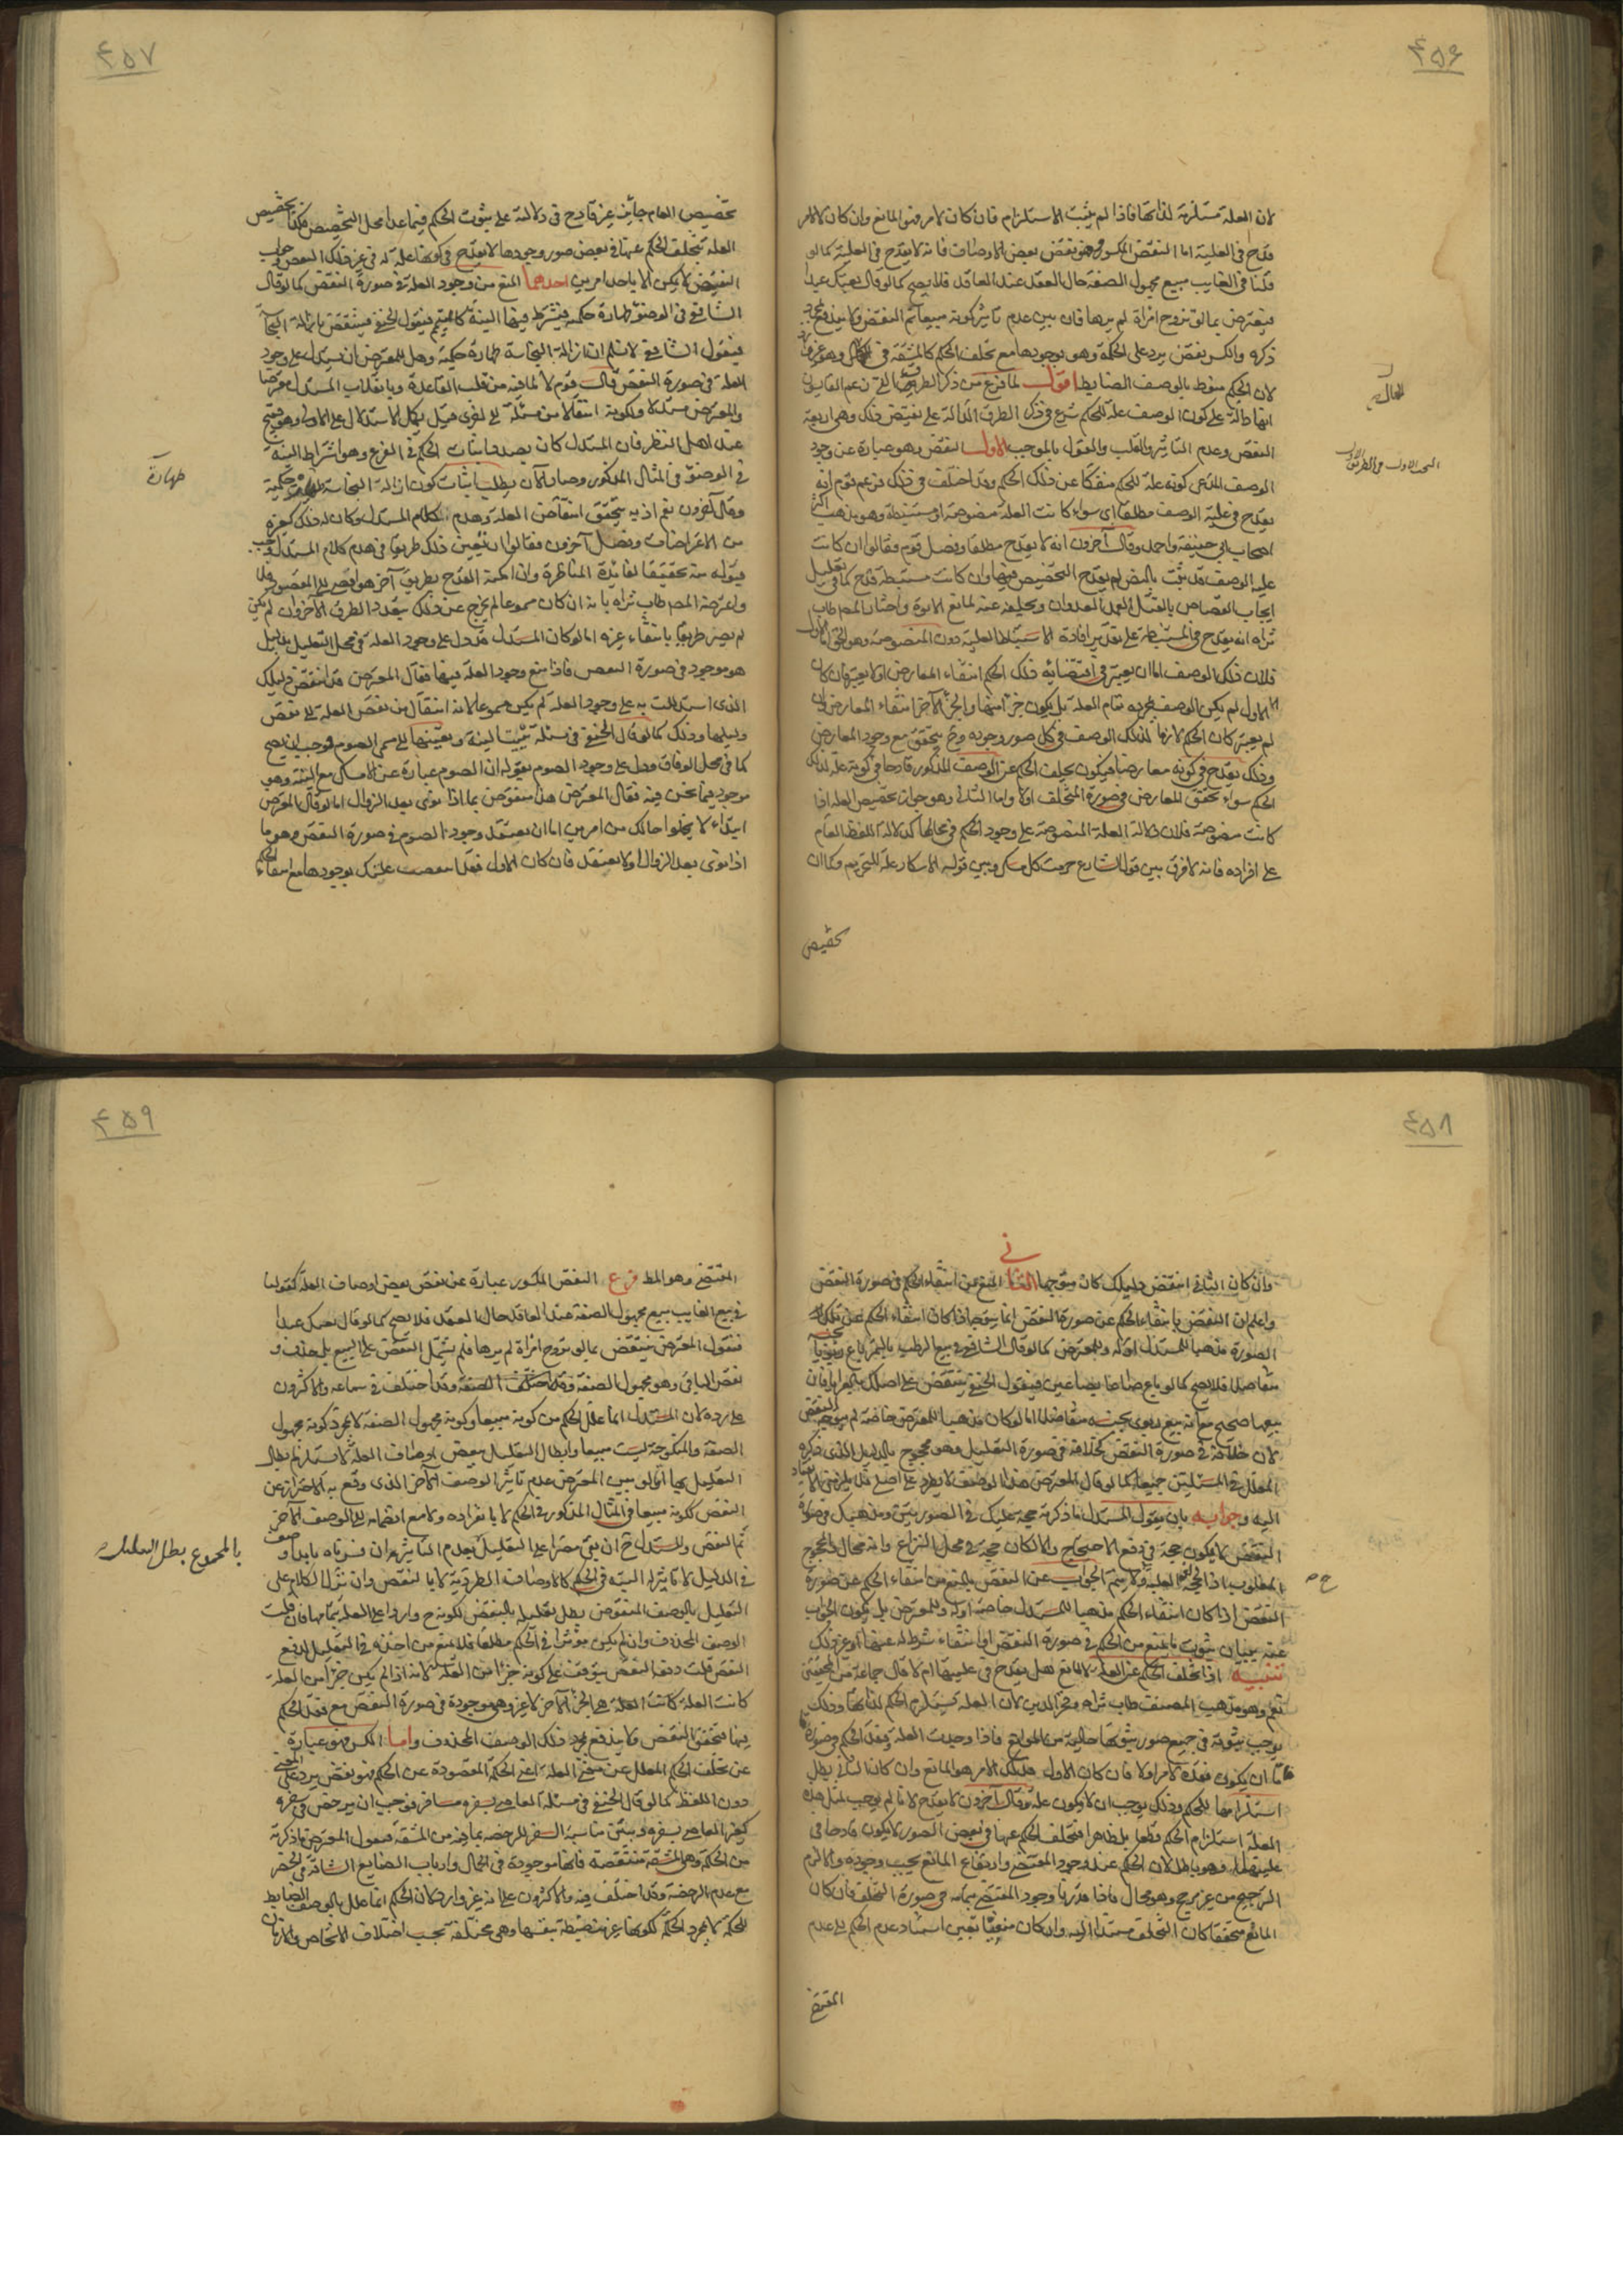 ۴۵۶
لان العلة مستلزمة لذاتها فاذا لم يثبت الاستلزام فان كان لامر فهو المانع وان كان لا لامر
قدح فى العلية اما النقض المكسور فهو نقض بعض الاوصاف فانه لا يقدح فى العلية كما لو
قلنا فى الغايب مبيع مجهول الصفة حال العقد عند العاقد فلا يصح كما لو قال بعتك عبدا
فيعترض بما لو تزوج امراة لم يرها فان بين عدم تاثير كونه مبيعا تم النقض ولا يندفع بمجرد
ذكره والكسر نقض يرد على الحكمة وهو وجودها مع تخلف الحكم كالمشقة فى وهو غير وارد
لان الحكم منوط بالوصف الضابط اقول لما فرغ من ذكر الطرق التى زعم القايسون
انها دالة على كون الوصف علة للحكم شرع فى ذكر الطرق الدالة على نقيض ذلك وهى اربعة
النقض وعدم التاثير والقلب والقول بالموجب الاول النقض وهو عبارة عن وجود
الوصف المدعى كونه علة للحكم منفكا عن ذلك الحكم وقد اختلف فى ذلك فزعم قوم انه
يقدح فى علية الوصف مطلقا اى سواء كانت العلة منصوصة او مستنبطة وهو مذهب اكثر
اصحاب ابى حنيفة واحمد وقال آخرون انه لا يقدح مطلقا وفصل قوم فقالوا ان كانت
علية الوصف قد ثبت بالنص لم يقدح التخصيص فيها وان كانت مستنبطة قدح كما فى تعليل
ايجاب القصاص بالقتل العمد العدوان وتخلفه عنه لمانع الابوة واختار المص طاب
ثراه انه يقدح فى المستنبطة على تقدير افادة الاستنباط العلية دون المنصوصة وهو الحق اما الاول
فلان ذلك الوصف اما ان يعتبر فى اقتضائه ذلك الحكم انتفاء المعارض او لا يعتبر فان كان
الاول لم يكن الوصف بمجرده تمام العلة بل يكون جزءا منها والجزء الآخر انتفاء المعارض وان
لم يعتبر كان الحكم لازما لذلك الوصف فى كل صور وجوده وح يتحقق مع وجود المعارض
وذلك يقدح فى كونه معارضا فيكون تخلف الحكم عن الوصف المذكور قادحا فى كونه علة لذلك
الحكم سواء تحقق المعارض فى صورة التخلف اولا واما الثانى وهو جواز تخصيص العلة اذا
كانت منصوصة فلان دلالة العلة المنصوصة على وجود الحكم فى محالها كدلالة اللفظ العام
على افراده فانه لا فرق بين قول الشارع حرمت كل مسكر وبين قوله الاسكار علة للتحريم وكما ان
تخصيص
البحث الاول من الطريق الاول
۴۵۷
تخصيص العام جايز غير قادح فى دلالته على ثبوت الحكم فيما عدا محل التخصيص فكذا تخصيص
العلة بتخلف الحكم عنها فى بعض صور وجودها لا يقدح فى كونها علة له فى غير ذلك البعض وجواب
النقيض لا يكن الا باحد امرين احدهما المنع من وجود العلة فى صورة النقض كما لو قال
الشافعى فى الوضوء طهارة حكمية فيشترط فيها النية كالتيمم فيقول الحنفى فينتقض بازالة النجاسة
فيقول الشافعى لا نسلم ان ازالة النجاسة طهارة حكمية وهل للمعترض ان يستدل على وجود
العلة فى صورة النقض قال قوم لا لما فيه من قلب القاعدة وبانقلاب المستدل معترضا
والمعترض مستدلا ولكونه انتقالا من مسئلة الى اخرى قبل تكمل الاستدلال على الاولى وهو قبيح
عند اهل النظر فان المستدل كان بصدد اثبات الحكم فى الفرع وهو اشتراط النية
فى الوضوء فى المثال المذكور وصار الآن يطلب اثبات كون ازالة النجاسة حكمية
وقال آخرون نعم اذ به يتحقق انتقاض العلة وهدم كلام المستدل وكان له ذلك كغيره
من الاعتراضات وفصل آخرون فقالوا ان تعين ذلك طريقا فى هدم كلام المستدل وجب
قبوله منه تحقيقا لفائدة المناظرة وان امكنه القدح بطريق آخر هو افضى الى المقصود فلا
واعترضه المص طاب ثراه بانه ان كان مسموعا لم يخرج عن ذلك بتعدد الطرق الآخر وان لم يكن
لم يصر طريقا بانتفاء غيره اما لو كان المستدل قد دل على وجود العلة فى محل التعليل بدليل
هو موجود فى صورة النقض فاذا منع وجود العلة فيها فقال المعترض قد انتقض دليلك
الذى استدللت به على وجود العلة لم يكن مسموعا لانه انتقال من نقض العلة الى نقض
دليلها وذلك كما لو قال الحنفى فى مسئلة تبييت النية وتعيينها الى مسمى الصوم فوجب ان يصح
كما فى محل الوفاق ودل على وجود الصوم بقوله ان الصوم عبارة عن الامساك مع النية وهو
موجود فيما نحن فيه فقال المعترض هذا منقوض بما اذا نوى بعد الزوال اما لو قال المعترض
ابتداء لا يخلوا حالك من امرين اما ان تعتقد وجود الصوم فى صورة النقض وهو ما
اذا نوى بعد الزوال او لا تعتقد فان كان الاول فقد انتقضت علتك بوجودها مع انتفاء الحكم
طهارة
۴۵۸
وان كان الثانى انتقض دليلك كان متوجها الثانى المنع من انتفاء الحكم فى صورة النقض
واعلم ان النقض بانتفاء الحكم عن صورة النقض انما يتوجه اذا كان انتفاء الحكم عن تلك
الصورة مذهبا للمستدل او له وللمعترض كما لو قال الشافعى فى بيع الرطب بالتمر باع ربويا بجنسه
متفاضلا فلا يصح كما لو باع صاعا بصاعين فيقول الحنفى ينتقض على اصلك بالعرايا فان
بيعها صحيح مع انه بيع ربوى بجنسه متفاضلا اما لو كان مذهبا للمعترض خاصة لم يتوجه النقض
لان خلافه فى صورة النقض كخلافه فى صورة التعليل وهو محجوج بالدليل الذى ذكره
المعلل فى المسئلتين جميعا كما لو قال المعترض هذا الوصف لا يطرد على اصلى فلا يلزمنى الانقياد
اليه وجوابه بان يقول المستدل ما ذكرته حجة عليك فى الصورتين ومذهبك فى صورة
النقض لا يكون حجة فى دفع الاحتجاج والا لكان حجة فى محل النزاع وانه محال
المطلوب اذا العلية ولا يتم الجواب عن النقض بالمنع من انتفاء الحكم عن صورة
النقض اذا كان انتفاء الحكم مذهبا للمستدل خاصة او له وللمعترض بل يكون الجواب
عنه ببيان ثبوت مانع من الحكم فى صورة النقض او انتفاء شرط له عنها او غير ذلك
تنبيه اذا تخلف الحكم عن العلة لا لمانع هل يقدح فى عليتها ام لا قال جماعة من المحققين
نعم وهو مذهب المصنف طاب ثراه وفخر الدين لان العلة تستلزم الحكم لذاتها وذلك
يوجب ثبوته فى جميع صور ثبوتها خالية من الموانع فاذا وجدت العلة وفقد الحكم فى صورة
فاما ان يكون فقده لامر او لا فان كان الاول فذلك الامر هو المانع وان كان الثانى بطل
استلزامها للحكم وذلك يوجب ان لا يكون علة وقال آخرون لا يقدح لانا لم نوجب لمثل هذه
العلة استلزام الحكم قطعا بل ظاهرا فتخلف الحكم عنها فى بعض الصور لا يكون قادحا فى
عليتها وهو باطل لان الحكم عند وجود المقتضى وارتفاع المانع يجب وجوده والا لزم
الترجيح من غير مرجح وهو محال فاذا قدرنا وجود المقتضى بتمامه فى صورة التخلف فان كان
المانع متحققا كان التخلف مستندا اليه وان كان منفيا تعين استناد عدم الحكم الى عدم
المقتضى
۴۵۹
المقتضى وهو المط فرع النقض المكسور عبارة عن نقض بعض اوصاف العلة كقولنا
فى بيع الغايب بيع مجهول الصفة عند العاقد حال العقد فلا يصح كما لو قال بعتك عبدا
فيقول المعترض ينتقض بما لو تزوج امراة لم يرها فلم يشمل النقض على المبيع بل حذفه و
نقض الباقى وهو مجهول الصفة وقد اختلف فى سماعه والاكثرون
على رده لان المستدل انما علل الحكم من كونه مبيعا وكونه مجهول الصفة لا بمجرد كونه مجهول
الصفة والمنكوحة ليست مبيعا وابطال التعليل ببعض اوصاف العلة لا يستلزم بطلان
التعليل بها اما لو بين المعترض عدم تاثير الوصف الآخر الذى وقع به الاحتراز عن
النقض ككونه مبيعا فى المثال المذكور فى الحكم لا بانفراده ولا مع انضمامه الى الوصف الآخر
تم النقض وللمستدل ح ان بقى مصرا على التعليل بعدم التاثير
فى الدليل لا تاثير له البتة فى الحكم كالاوصاف الطردية لا بالنقض وان ترك الكلام على
التعليل بالوصف المنقوض بطل تعليله بالنقض لكونه ح واردا على العلة بتمامها فان قلت
الوصف المحذوف وان لم يكن مؤثرا فى الحكم مطلقا فلا يمتنع من اخذه فى التعليل لدفع
النقض قلت دفع النقض يتوقف على كونه جزءا من العلة لانه اذا لم يكن جزءا من العلة
كانت العلة هى الجزء الآخر لا غير وهى موجودة فى صورة النقض مع فقد الحكم
فيها فتحقق النقض ولا يندفع بمجرد ذلك الوصف المحذوف واما الكسر فهو عبارة
عن تخلف الحكم المعلل عن معنى العلة اعنى الحكمة المقصودة عن الحكم فهو نقض يرد على المعنى
دون اللفظ كما لو قال الحنفى فى مسئلة العاصى بسفره مسافر فوجب ان يترخص فى سفره
كغير العاصى بسفره وبين مناسبة السفر للرخصة بما فيه من المشقة فيقول المعترض ما ذكرته
من الحكمة وهى المشقة منتقضة فانها موجودة فى الحمال وارباب الصنايع الشاقة فى الحضر
مع عدم الرخصة وقد اختلف فيه والاكثرون على انه غير وارد لان الحكم انما علل بالوصف الضابط
للحكمة لا بمجرد الحكمة لكونها غير منضبطة بنفسها وهى مختلفة بحسب اختلاف الاشخاص والازمان
بالمجموع بطل التعليل